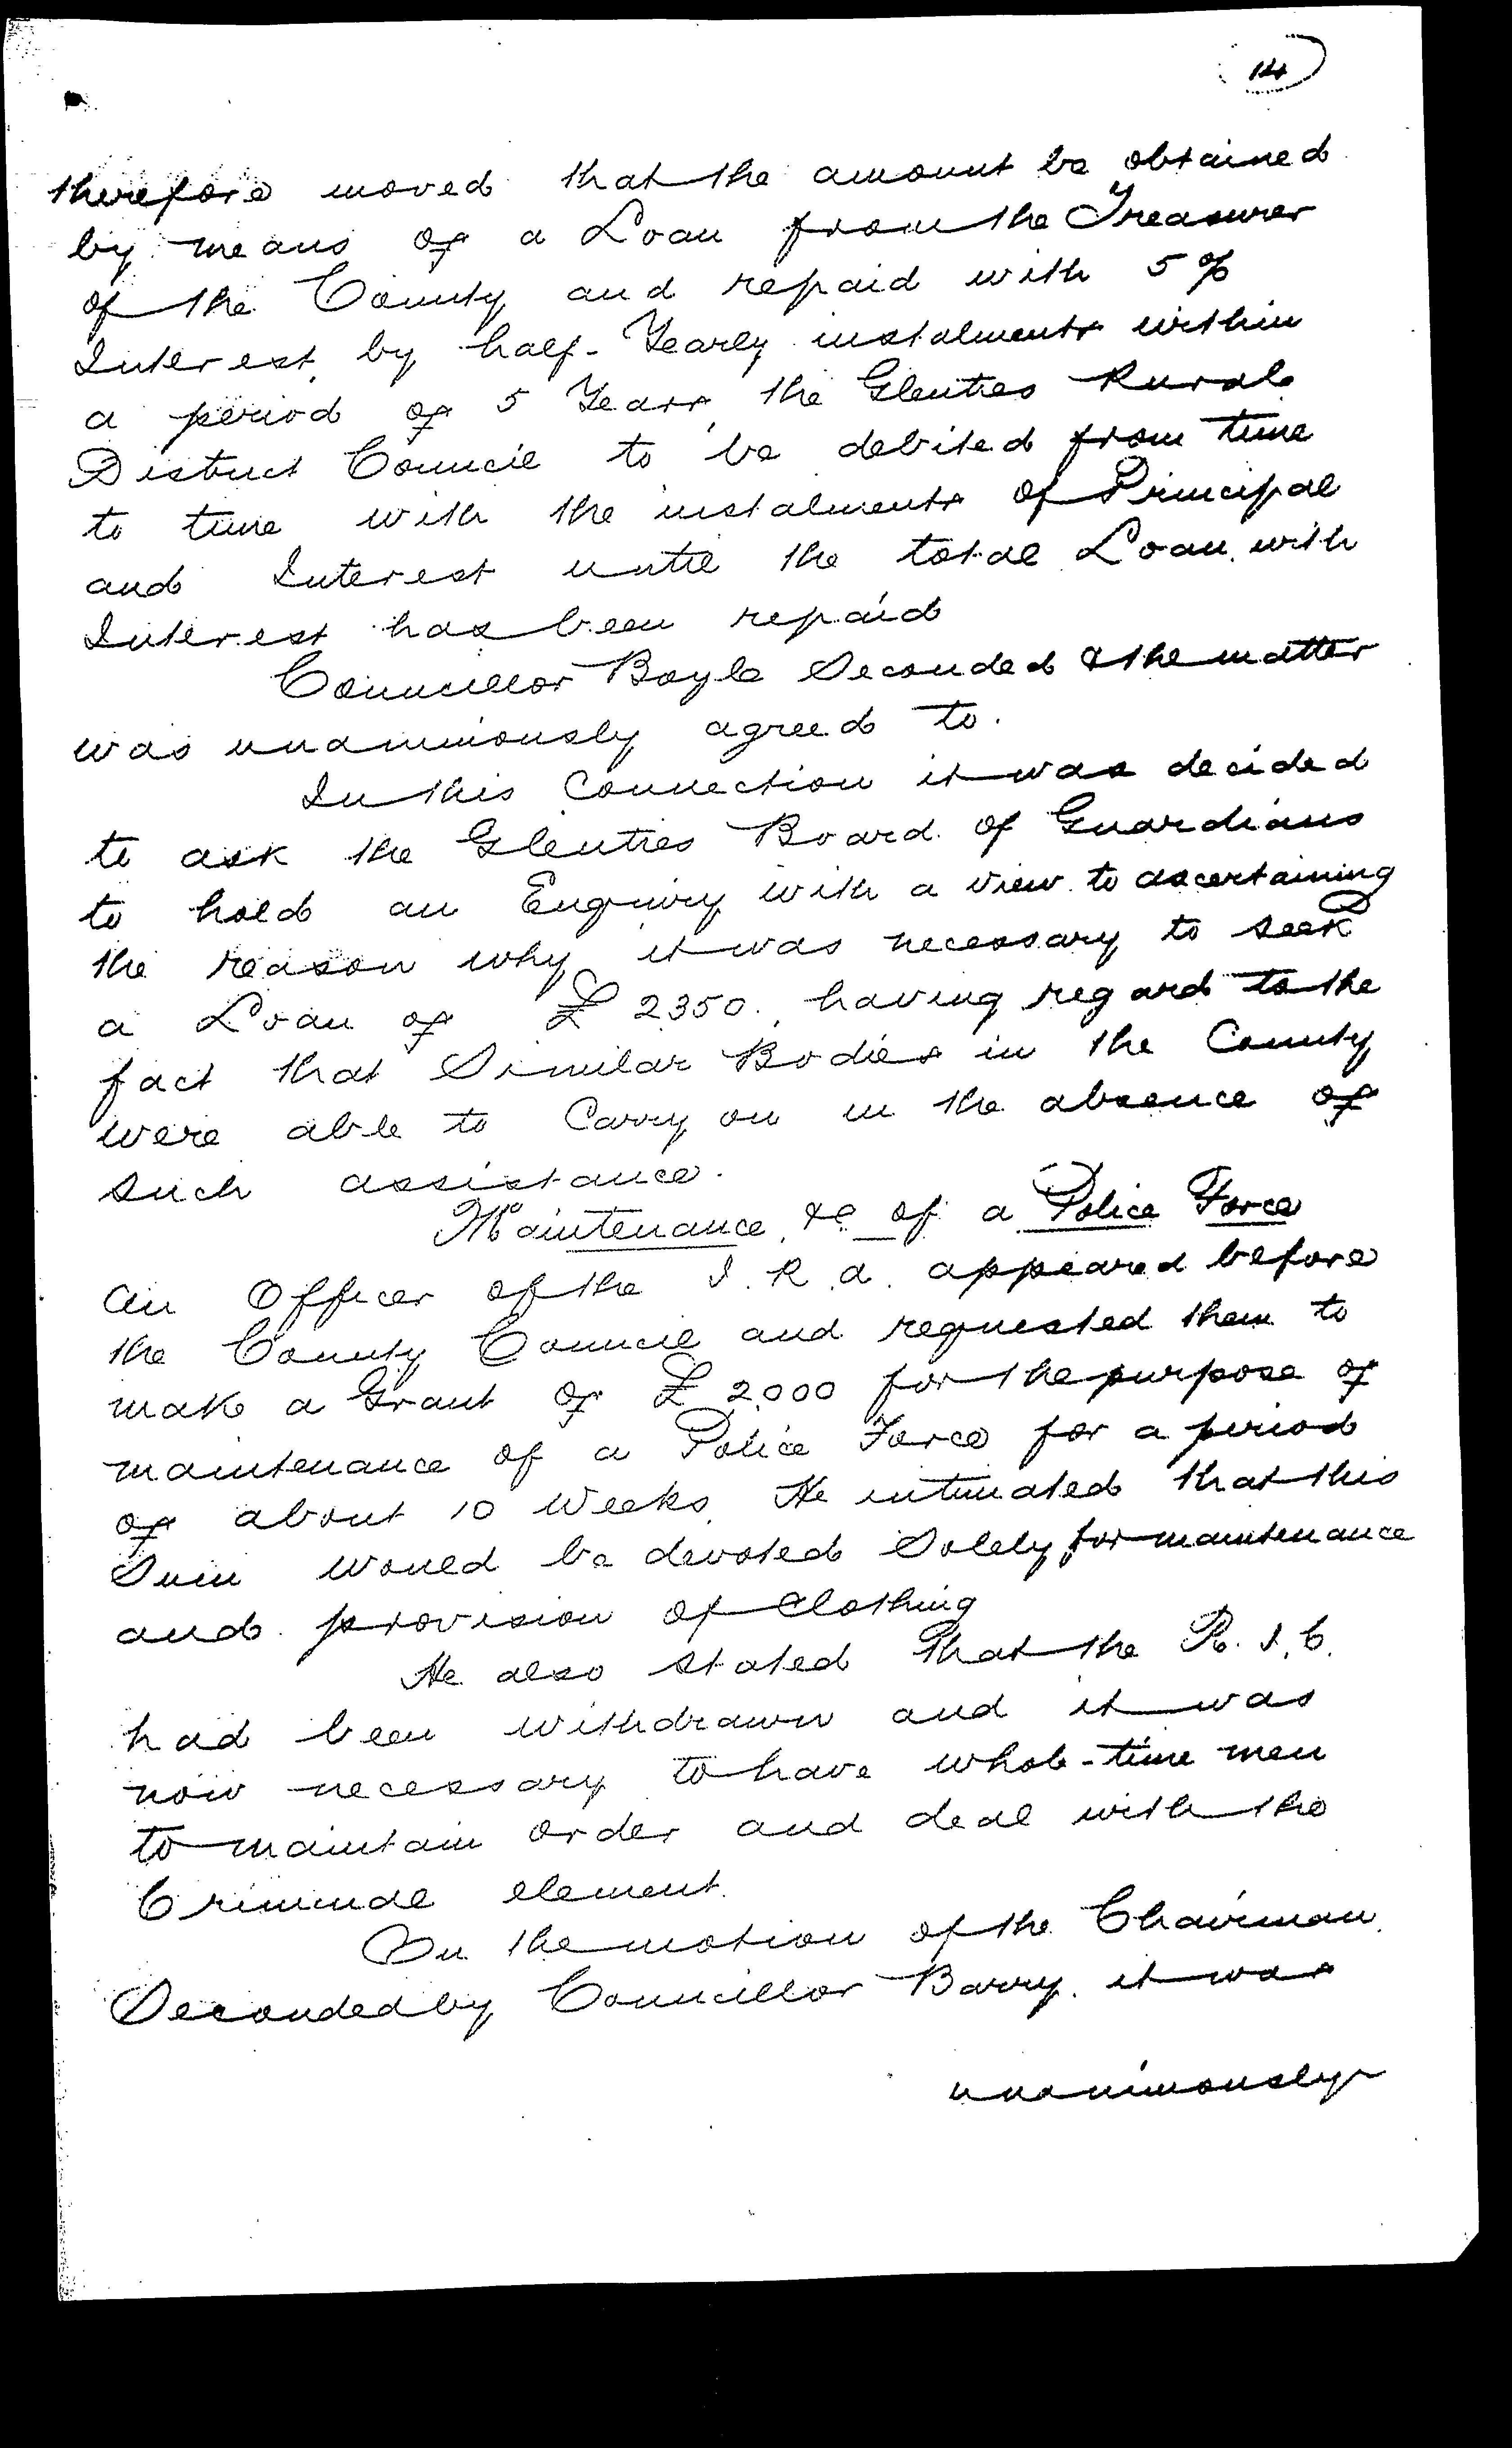 14
therefore moved that the amount be obtained
by means of a Loan from the Treasurer
of the County and repaid with 5 %
Interest by half-Yearly instalments within
a period of 5 Years, the Glenties Rural
District Council to be debited from time
to time with the instalments of Principal
and Interest until the total Loan with
Interest has been repaid
Councillor Boyle Seconded & the matter
was unanimously agreed to.
In this Connection it was decided
to ask the Glenties Board of Guardians
to hold an Enquiry with a view to ascertaining
the reason why it was necessary to seek
a Loan of £2350. having regard to the
fact that Similar Bodies in the County
were able to Carry on in the absence of
such assistance.
Maintenance &c of a Police Force
An Officer of the I.R.A. appeared before
the County Council and requested them to
make a Grant of £2,000 for the purpose of
maintenance of a Police Force for a period
of about 10 Weeks. He intimated that this
Sum would be devoted Solely for maintenance
and provision of Clothing
He also stated that the R.I.C.
had been withdrawn and it was
now necessary to have whole-time men
to maintain order and deal with the
Criminal element.
On the motion of the Chairman,
Seconded by Councillor Barry, it was
unanimously